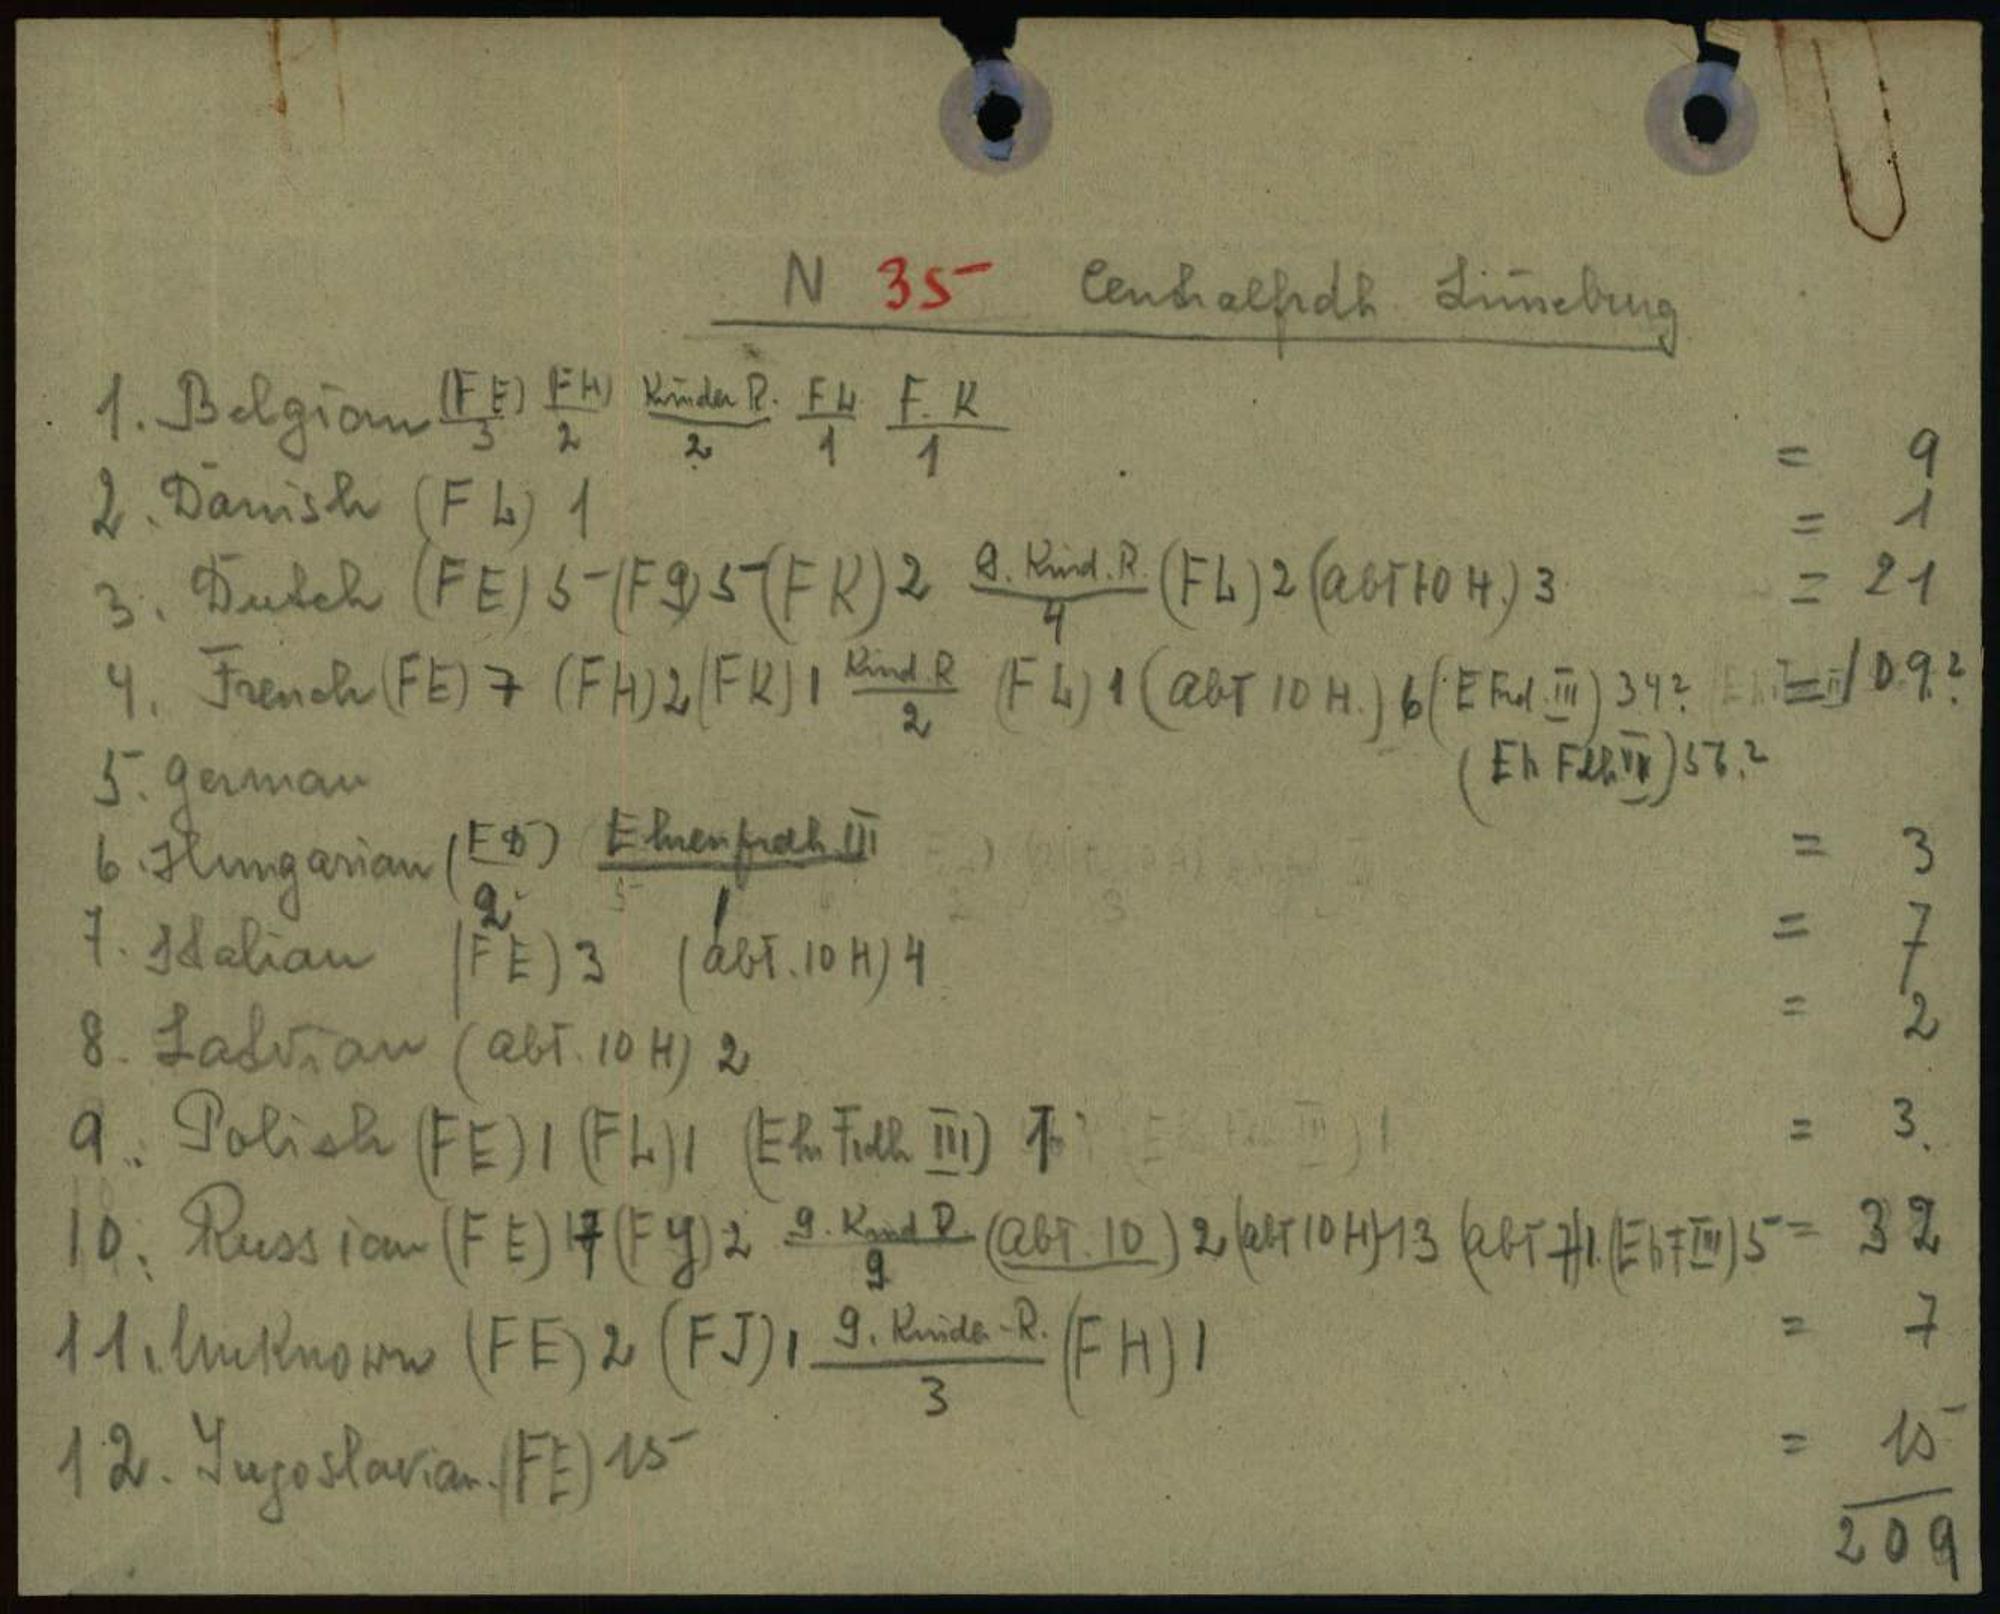 N 35 Centralfrdh Lüneburg
1. Belgian (FE)/3 (FH)/2 Kinder R./2 FL/1 F.K/1 = 9
2. Danish (FL) 1 = 1
3. Dutch (FE) 5 (FG) 5 (FK) 2 g. Kind. R./4 (FL) 2 (abt 10 H.) 3 = 21
4. French (FE) 7 (FH) 2 (FK) 1 Kind R/2 (FL) 1 (abt 10 H.) 6 (E Frd. III) 34? = 109.?
(Eh Fdh VII) 56.?
5. German
6. Hungarian (FD)/2 Ehrenfrdh III/1 = 3
7. Italian (FE) 3 (abt. 10 H) 4 = 7
8. Latvian (abt. 10 H) 2 = 2
9. Polish (FE) 1 (FL) 1 (Eh Frdh III) 1 = 3.
10. Russian (FE) (FY) 2 g. Kind R./9 (abt. 10) 2 (abt 10 H) 13 (abt 7) 1. (Eh F III) 5 = 32
11. Unknown (FE) 2 (FJ) 1 g. Kinder-R./3 (FH) 1 = 7
12. Jugoslavian. (FE) 15 = 15
209